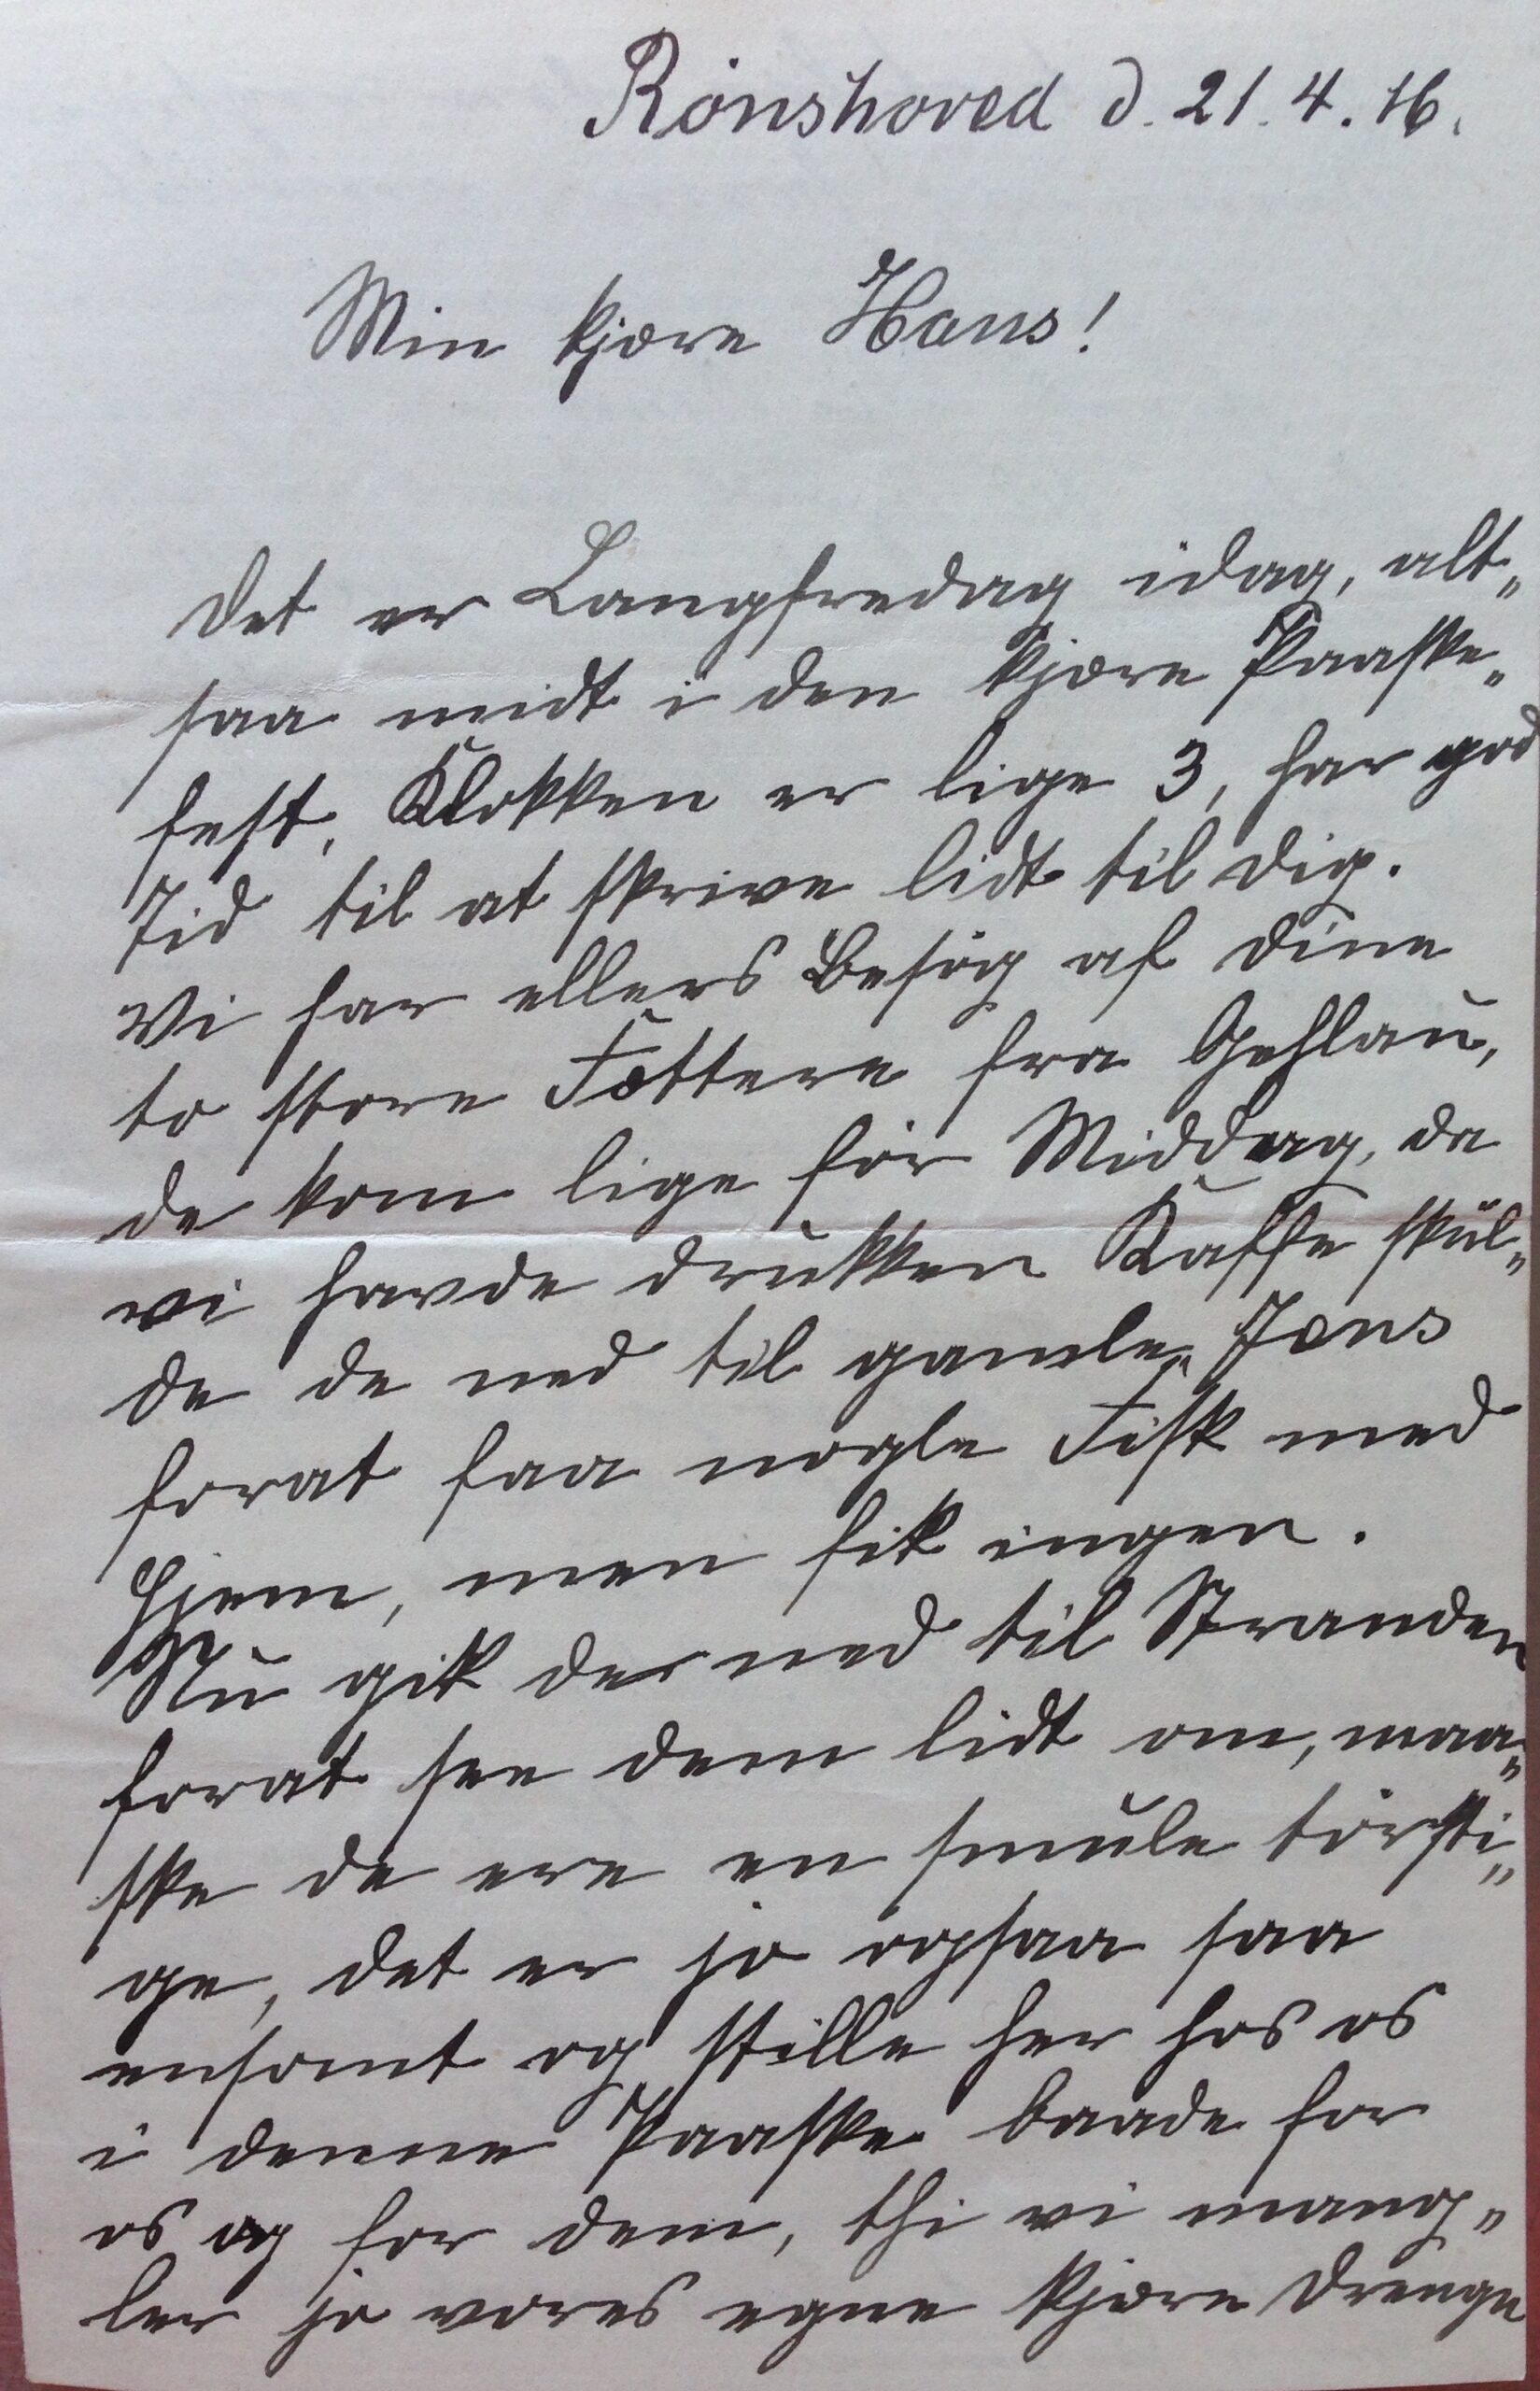 Rönshoved d. 21.4.16.
Min kjære Hans!
Det er Langfredag idag, alt„
saa midt i den kjære Paaske„
fest. Klokken er lige 3, har god
Tid til at skrive lidt til Dig.
Vi har ellers Besög af Dine
to store Fættere fra Gehlau,
de kom lige för Middag, da
vi havde drukken Kaffe skul„
de de ned til gamle Jens
forat faa nogle Fisk med
hjem, men fik ingen.
Nu gik der ned til Stranden
forat see dem lidt om, maa„
ske de ere en smule törsti„
ge, det er jo ogsaa saa
ensomt og stille her hos os
i denne Paaske baade for
os og for dem, thi vi mang„
ler jo vores egne kjære Drenge